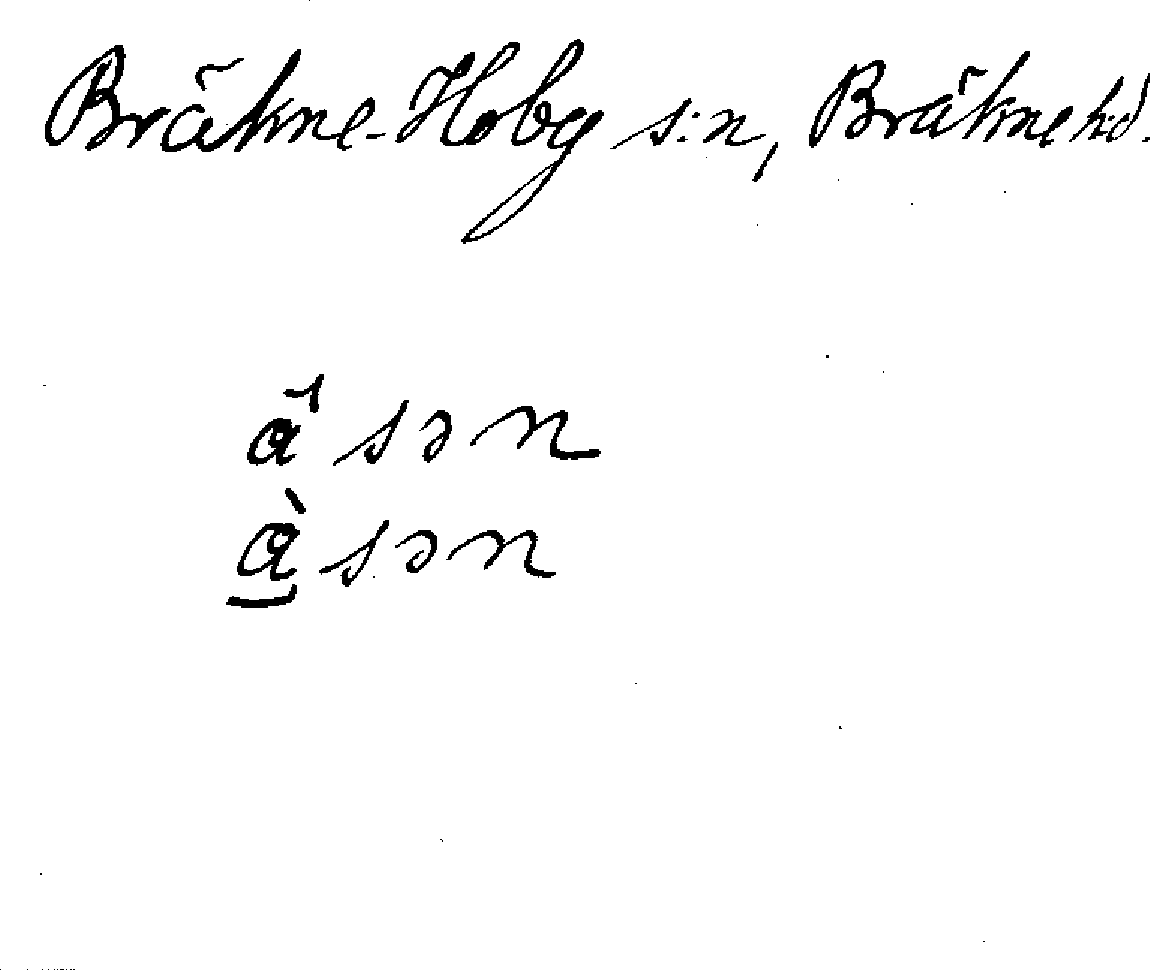 Bräkne-Hoby s:n, Bräkne h:d.
a᷇sən
à̱sən